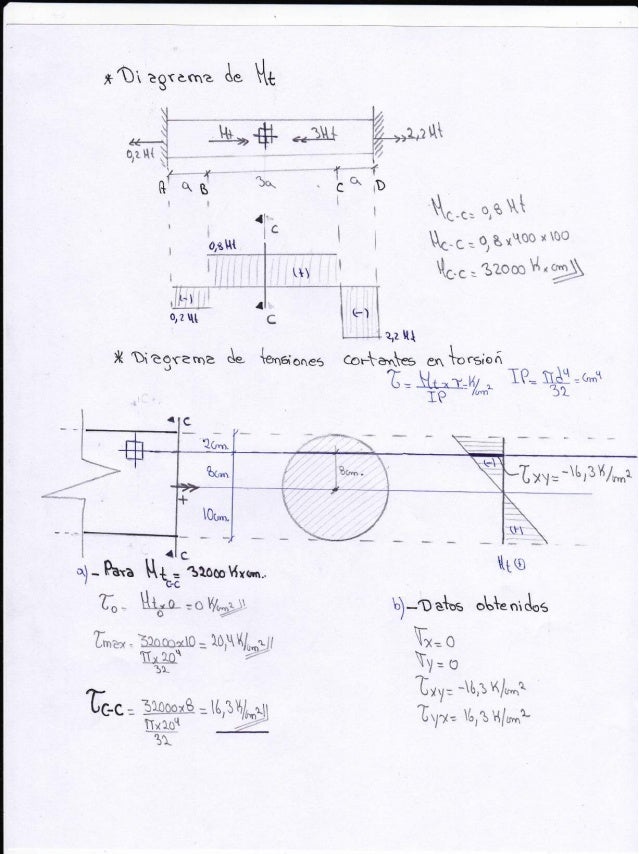 * Diagrama de Mt
Mt 3Mt 2,2 Mt
0,2 Mt
A a B 3a C a D
C
0,8 Mt
(+)
(-)
0,2 Mt
C
(-)
2,2 Mt
Mc-c = 0,8 Mt
Mc-c = 0,8 x 400 x 100
Mc-c = 32000 K x cm //
* Diagrama de tensiones cortantes en torsión
τ = Mt x r / IP = K/cm² IP = πd⁴/32 = cm⁴
C
2cm.
8cm
10cm.
+
C
8cm.
(-)
τxy = -16,3 K/cm²
(+)
Mt ⊕
a)- Para Mt c-c = 32000 K x cm..
τo = Mt x 0 / 0 = 0 K/cm² //
τmax = 32000 x 10 / (π x 20⁴ / 32) = 20,4 K/cm² //
τc-c = 32000 x 8 / (π x 20⁴ / 32) = 16,3 K/cm² //
b)- Datos obtenidos
σx = 0
σy = 0
τxy = -16,3 K/cm²
τyx = 16,3 K/cm²